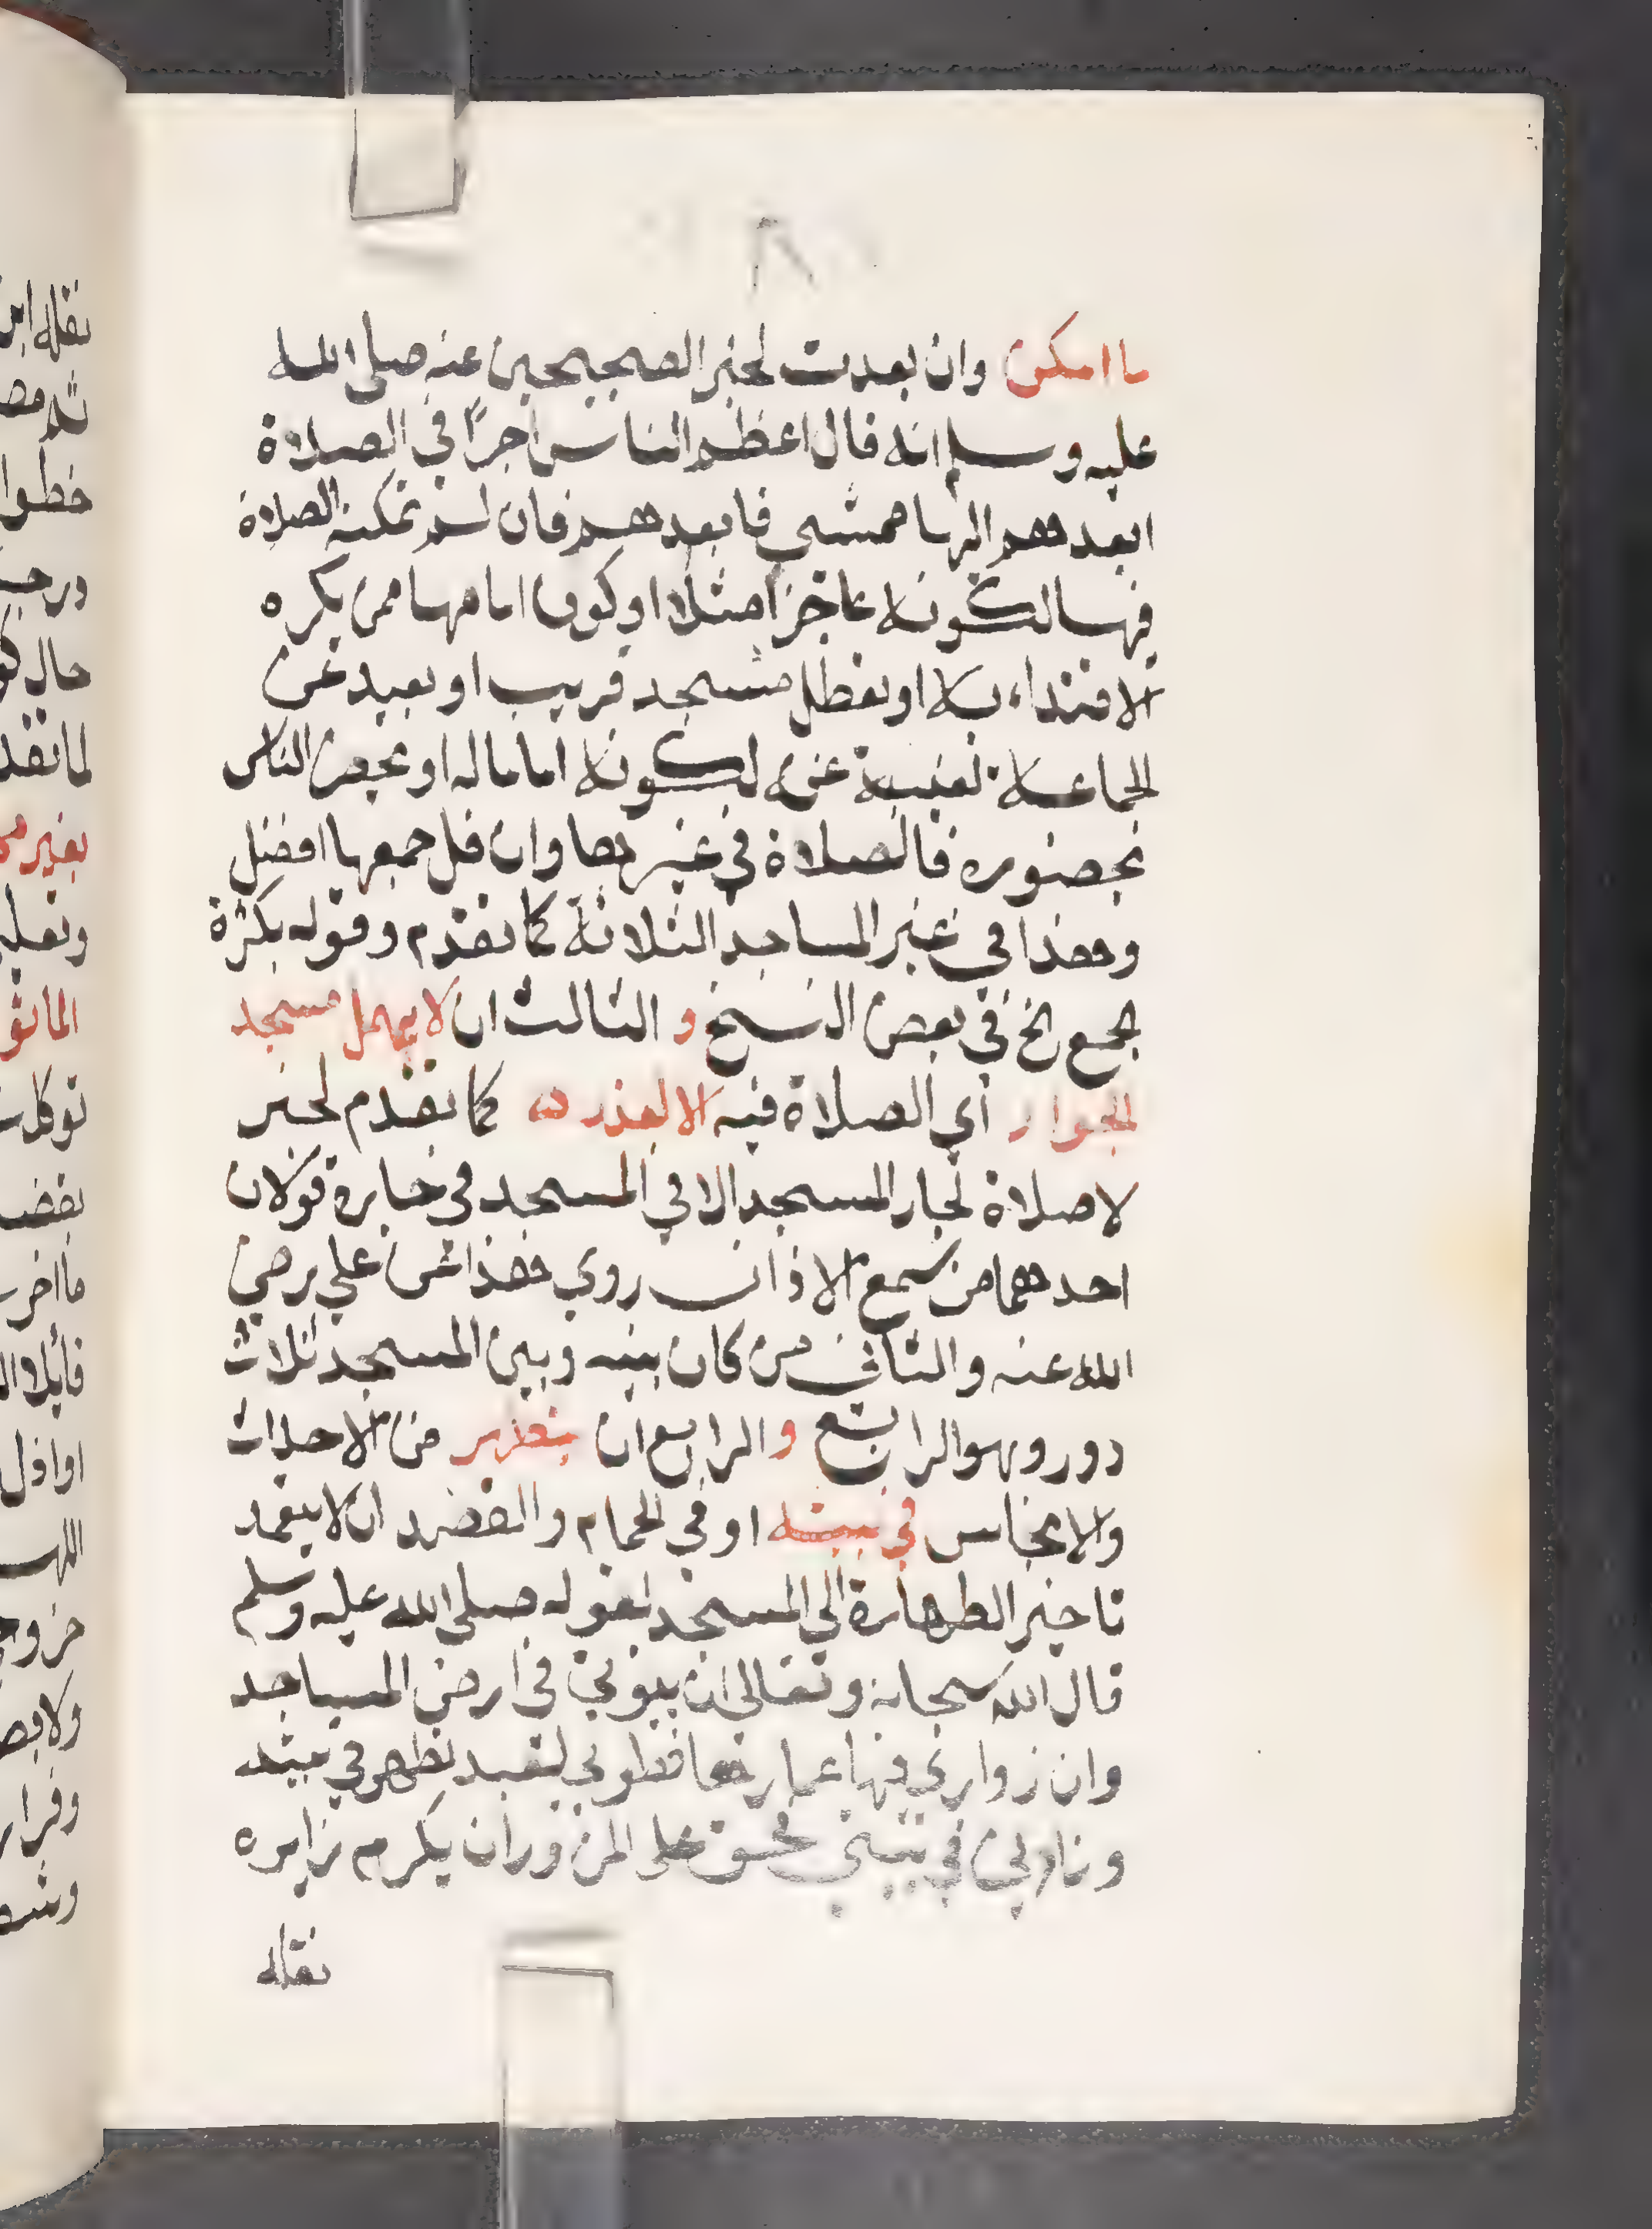 ما امكن وان بعدت لخبر الصحيحين عنه صلى الله
عليه وسلم انه قال اعظم الناس اجرًا في الصلاة
ابعدهم اليها ممشى فابعدهم فان لم تمكنه الصلاة
فيها لكونه عاجزا مثلا او كون امامها ممن يكره
الاقتداء به او تعطل مسجد قريب او بعيد عن
الجماعة لغيبته عنه لكونه اماما له او يحضر الناس
بحضوره فالصلاة في غيرها وان قل جمعها افضل
وهذا في غير المساجد الثلاثة كما تقدم وقوله بكثرة
الجمع الخ في بعض النسخ و الثالث ان لا يهمل مسجد
الجوار أي الصلاة فيه الا لعذر كما تقدم لخبر
لا صلاة لجار المسجد الا في المسجد في جاره قولان
احدهما من سمع الاذان روي هذا عن علي رضي
الله عنه والثاني من كان بينه وبين المسجد ثلاث
دور وهو الرابع و الرابع ان يتطهر من الاحداث
والانجاس في بيته او في الحمام والقصد ان لا يتعمد
تاخير الطهارة الى المسجد لقوله صلى الله عليه وسلم
قال الله سبحانه وتعالى ان بيوتي في ارضي المساجد
وان زواري فيها عمارها فطوبى لعبد تطهر في بيته
وزارني في بيتي فحق على المزور ان يكرم زايره
نقله